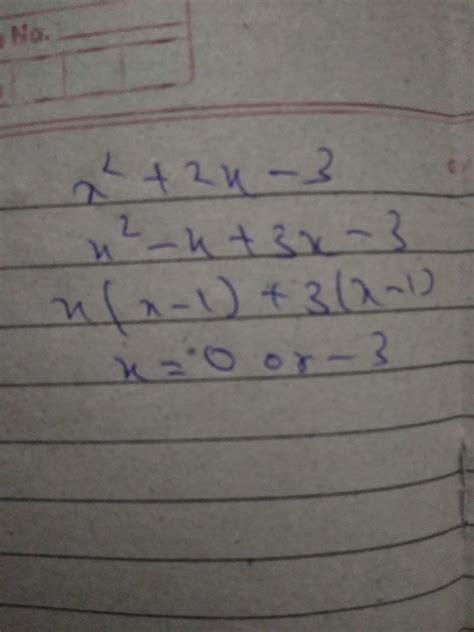 No.
x² + 2x - 3
x² - x + 3x - 3
x(x-1) + 3(x-1)
x = 0 or - 3